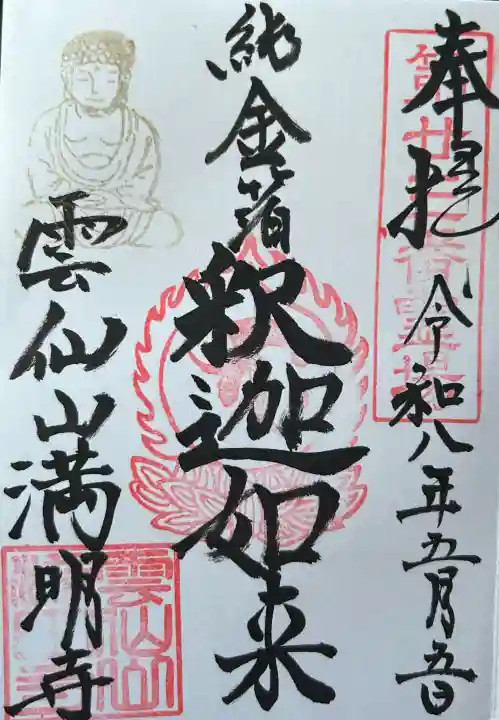 奉拝 令和八年五月五日
第廿三番霊場
純金箔
釈迦如来
雲仙山満明寺
雲仙山